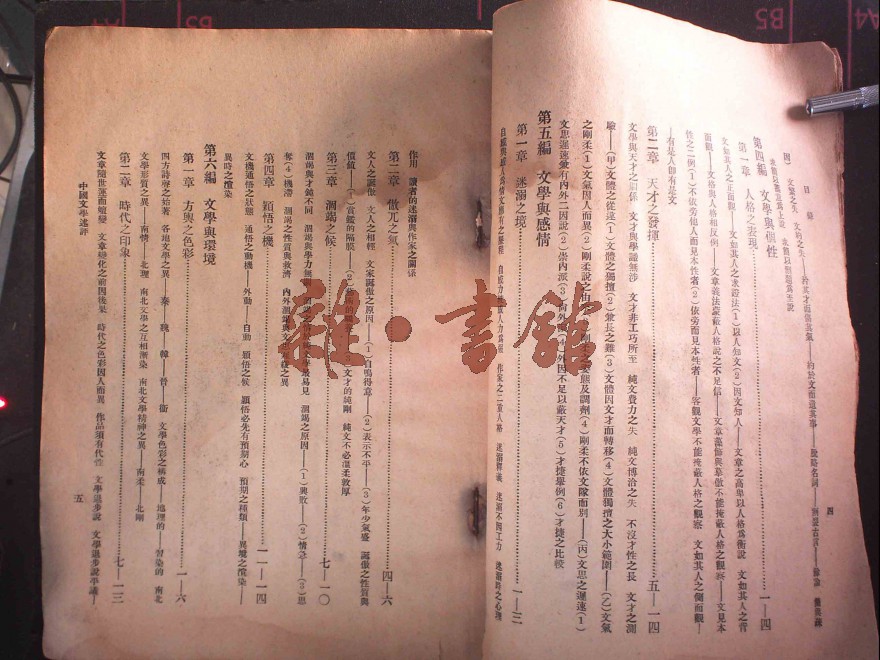 目錄
四
第四編 文學與個性
第一章 人格之表現 一—四
文如其人之正面觀——文如其人之求證法(1)以人知文(2)因文知人——文章之高舉以人格爲衡說 文如其人之背
面觀——文格與人格相反例——文章義法蒙蔽人格說之不足信——文章藻飾與摹倣不能掩蔽人格之觀察——文見本
性之二例(1)不依旁他人而見本性者(2)依旁而見本性者——客觀文學不能掩蔽人格之觀察 文如其人之側面觀—
—有是人卽有是文
第二章 天才之發揮 五—一四
文學與天才之關係 文才與學識無涉 文才非工巧所至 純文費力之失 純文博洽之失 不沒才性之長 文才之測
驗——(甲)文體之從違(1)文體之獨擅(2)兼長之難(3)文體因文才而轉移(4)文體獨擅之大小範圍——(乙)文氣
之剛柔(1)文氣因人而異(2)剛柔說之由 態及調劑(4)剛柔不依文隊而別——(丙)文思之遲速(1)
文思遲速兼有內外二因說(2)崇內派(3)尚外 (4)外因不足以蔽天才(5)才捷舉例(6)才捷之比較
第五編 文學與感情
第一章 迷溺之境 一—三
自感與超人 作家之二重人格 迷溺釋義 迷溺不因工力 迷溺時之心理
作用 讀者的迷溺與作家之關係
第二章 傲兀之氣 四—六
文人之誕傲 文人之相輕 文家誕傲之原因——(1)自鳴得意——(2)表示不平——(3)年少氣盛 誕傲之性質與
價值——(1)賞鑑的隔膜——(2) 文才的純剛 純文不必溫柔敦厚
第三章 涸竭之候 七—一〇
涸竭與才鈍不同 涸竭與學力無 易見 涸竭之原因——(1)興敗——(2)情急——(3)思
奪(4)機滯 涸竭之性質與救濟 內外涸竭與文 之異
第四章 穎悟之機 一一—一四
文機通悟之狀態 通悟之動機——外動——自動 穎悟之候 穎悟必先有預期心 預期之種類——異境之渲染——
異時之渲染
第六編 文學與環境
第一章 方輿之色彩 一—六
四方詩聲之始著 各地文學之異——秦 魏 韓 晉 衞 文學色彩之構成——地理的——習染的 南北
文學形質之異——南情——北理 南北文學之互相漸染 南北文學精神之異——南柔——北剛
第二章 時代之印象 七—一三
文章隨世運而嬗變 文章變化之前因後果 時代之色彩因人而異 作品須有代性 文學退步說 文學進步說平議——
中國文學述評
五
雜·書館